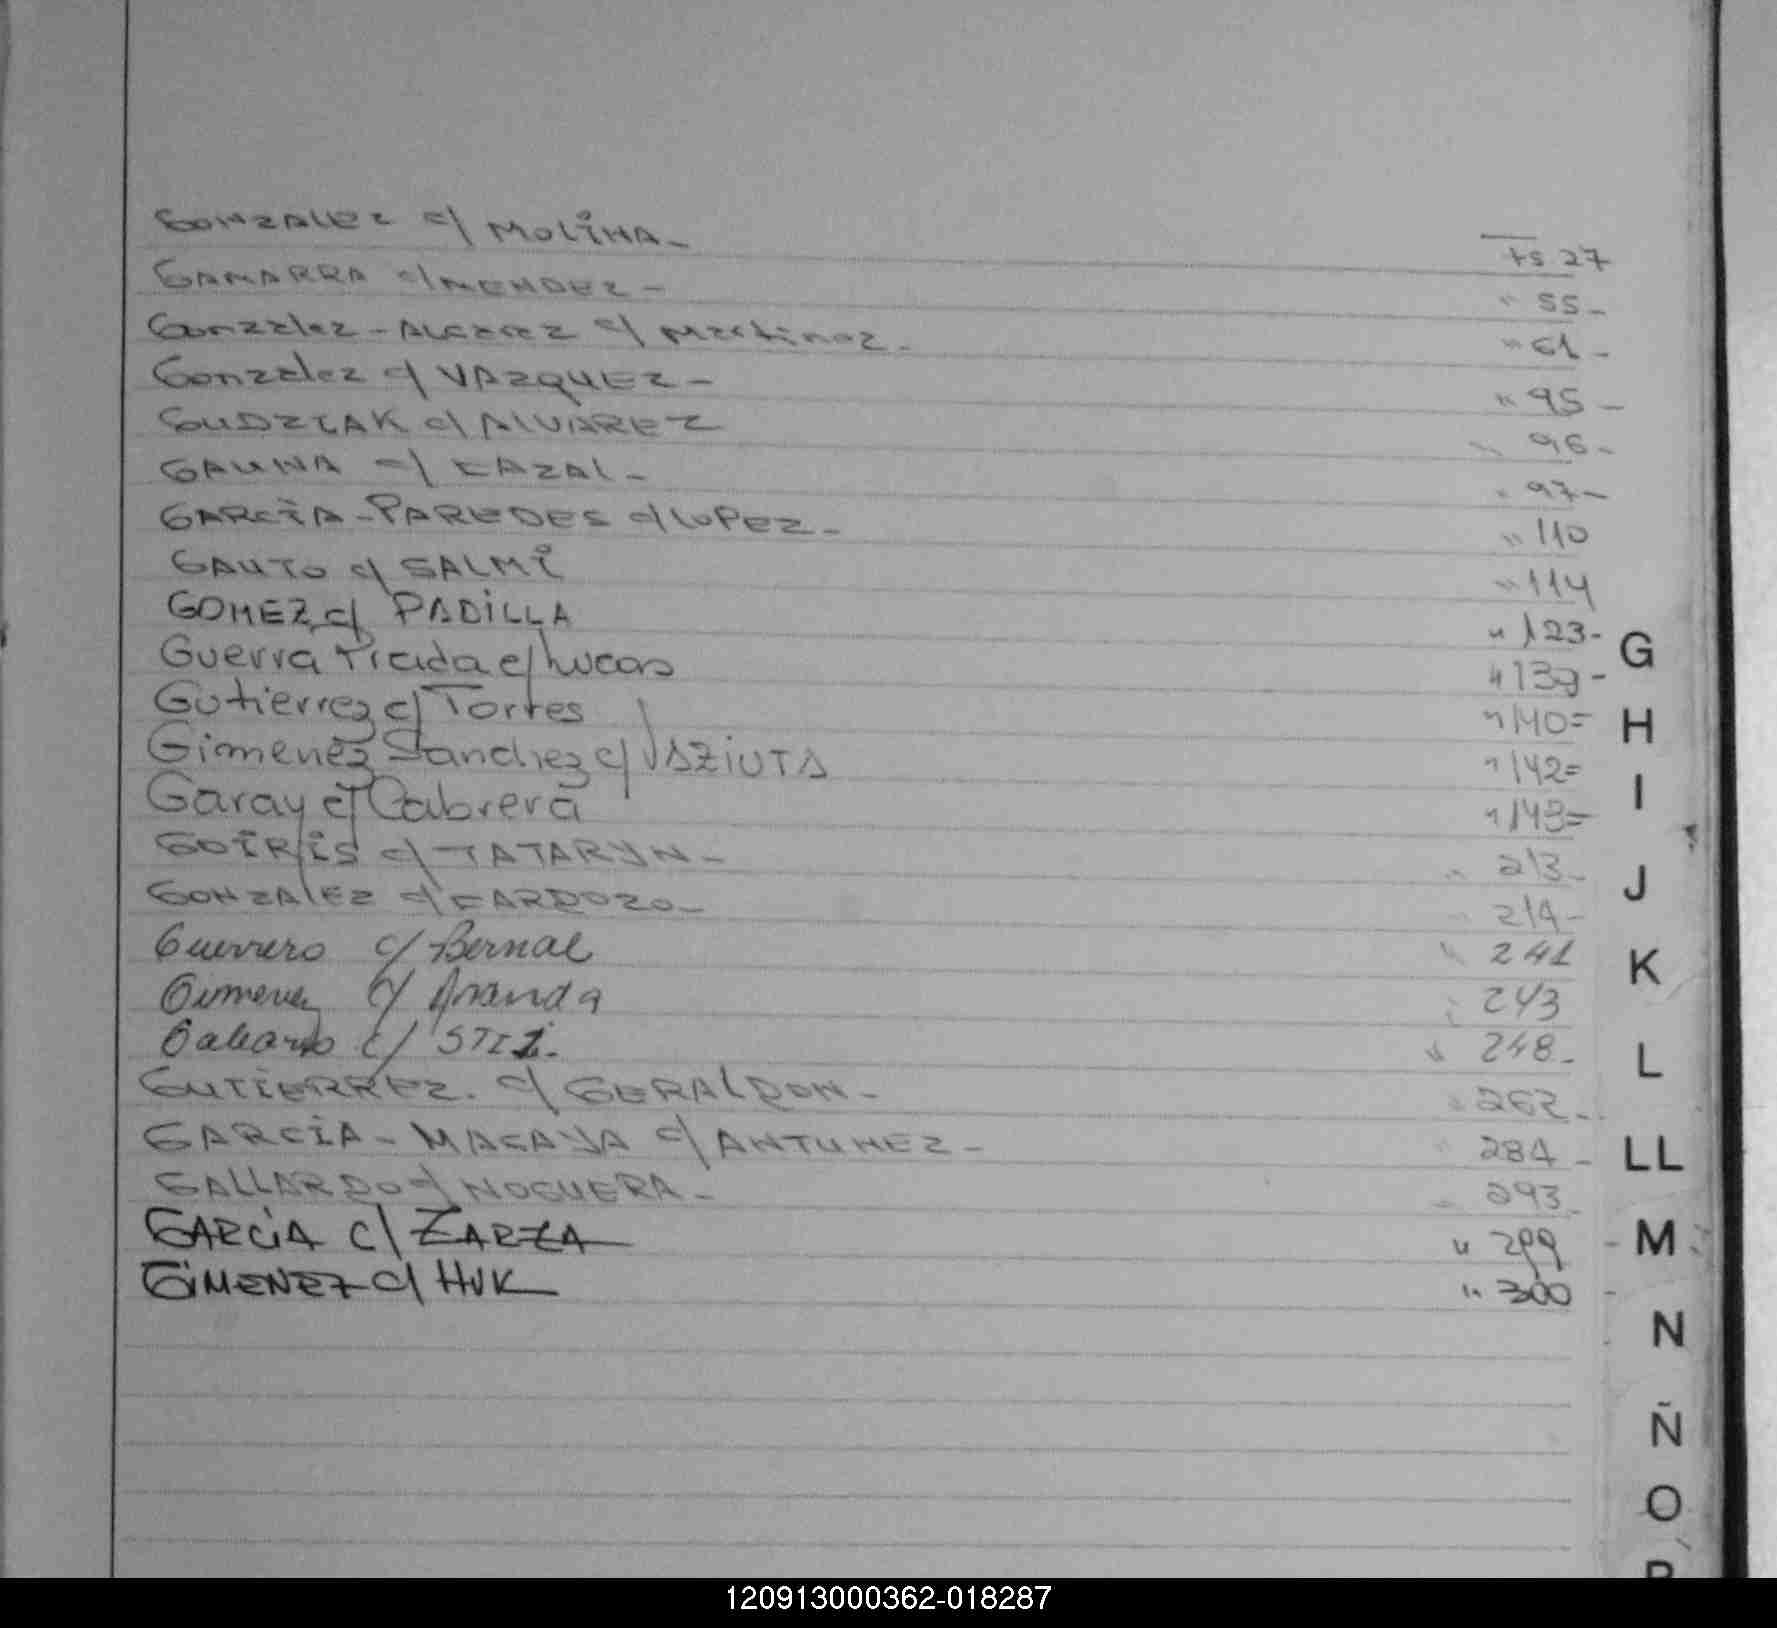 GONZALEZ c/ MOLINA- Fs 27
GAMARRA c/ MENDEZ- " 55-
Gonzalez-Alcaraz c/ Martinez- " 61-
Gonzalez c/ VAZQUEZ- " 95-
GUDZIAK c/ ALVAREZ " 96-
GAUNA c/ CAZAL- " 97-
GARCIA-PAREDES c/ LOPEZ- " 110
GAUTO c/ SALMI " 114
GOMEZ c/ PADILLA " 123-
Guerra c/ Lucas " 139-
Gutierrez c/ Torres " 140=
Gimenez Sanchez c/ VAZIUTA " 142=
Garay c/ Cabrera " 143=
GOIRIS c/ TATARYN- " 213-
GONZALEZ c/ CARDOZO- " 214-
Guerrero c/ Bernal " 241
Gimenez c/ Aranda " 243
Galeano c/ " 248-
GUTIERREZ. c/ GERALDON- " 262-
GARCIA-MACAYA c/ ANTUNEZ- " 284-
GALLARDO c/ NOGUERA- " 293-
GARCIA c/ ZARZA " 299 -
GIMENEZ c/ HUK " 300 -
G
H
I
J
K
L
LL
M
N
Ñ
O
P
120913000362-018287